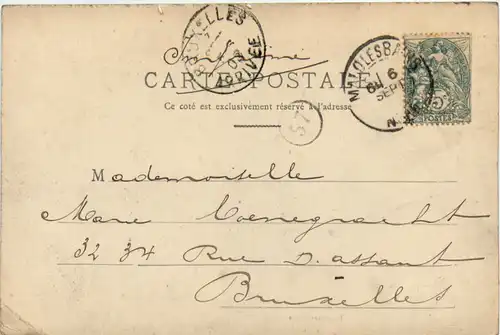 BRUXELLES
ARRIVÉE
CARTE POSTALE
Ce côté est exclusivement réservé à l'adresse
6
SEPT
POSTES
57
Mademoiselle
Marie Coenegracht
32 34 Rue D'assaut
Bruxelles